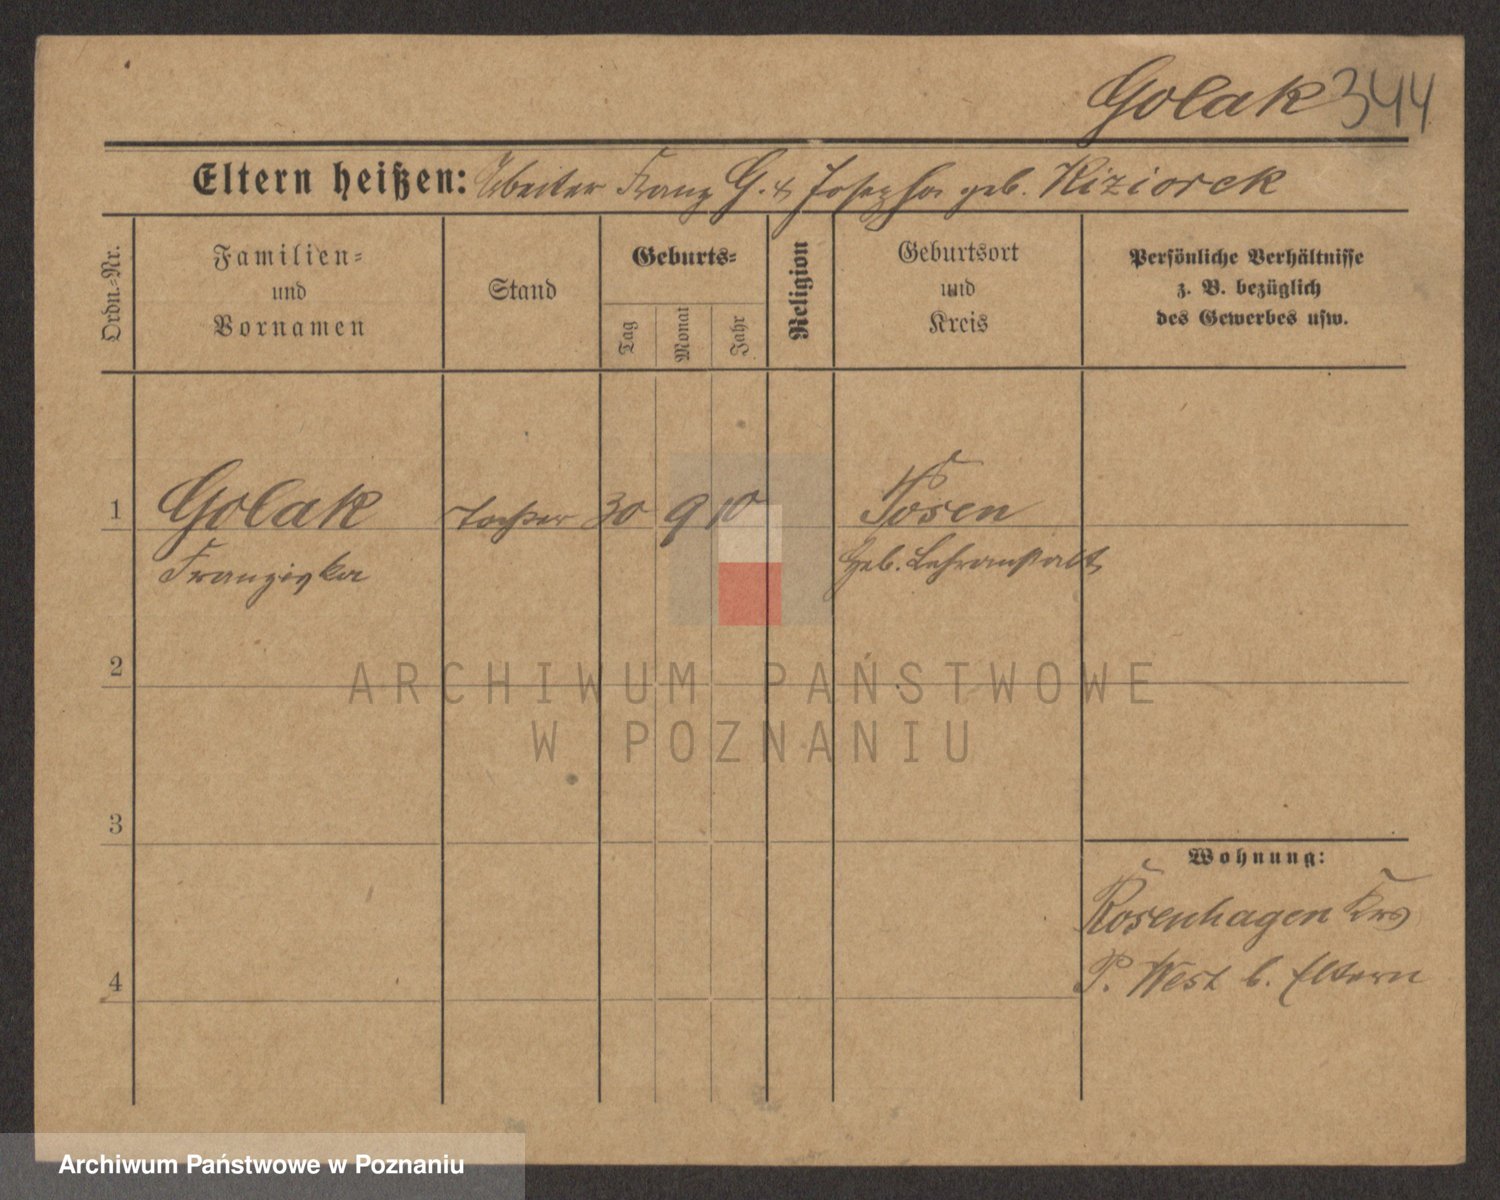 Golak 344
Eltern heißen: Arbeiter Franz G. & Josepha geb. Kiziorek
Ordn.-Nr.
Familien-
und
Vornamen
Stand
Geburts-
Tag
Monat
Jahr
Religion
Geburtsort
und
Kreis
Persönliche Verhältnisse
z. B. bezüglich
des Gewerbes usw.
1 Golak Tochter 30 9 10 Posen
Franziska Heb. Lehranstalt
2
ARCHIWUM PAŃSTWOWE
W POZNANIU
3
Wohnung:
Rosenhagen Krs
4 P. West b. Eltern
Archiwum Państwowe w Poznaniu